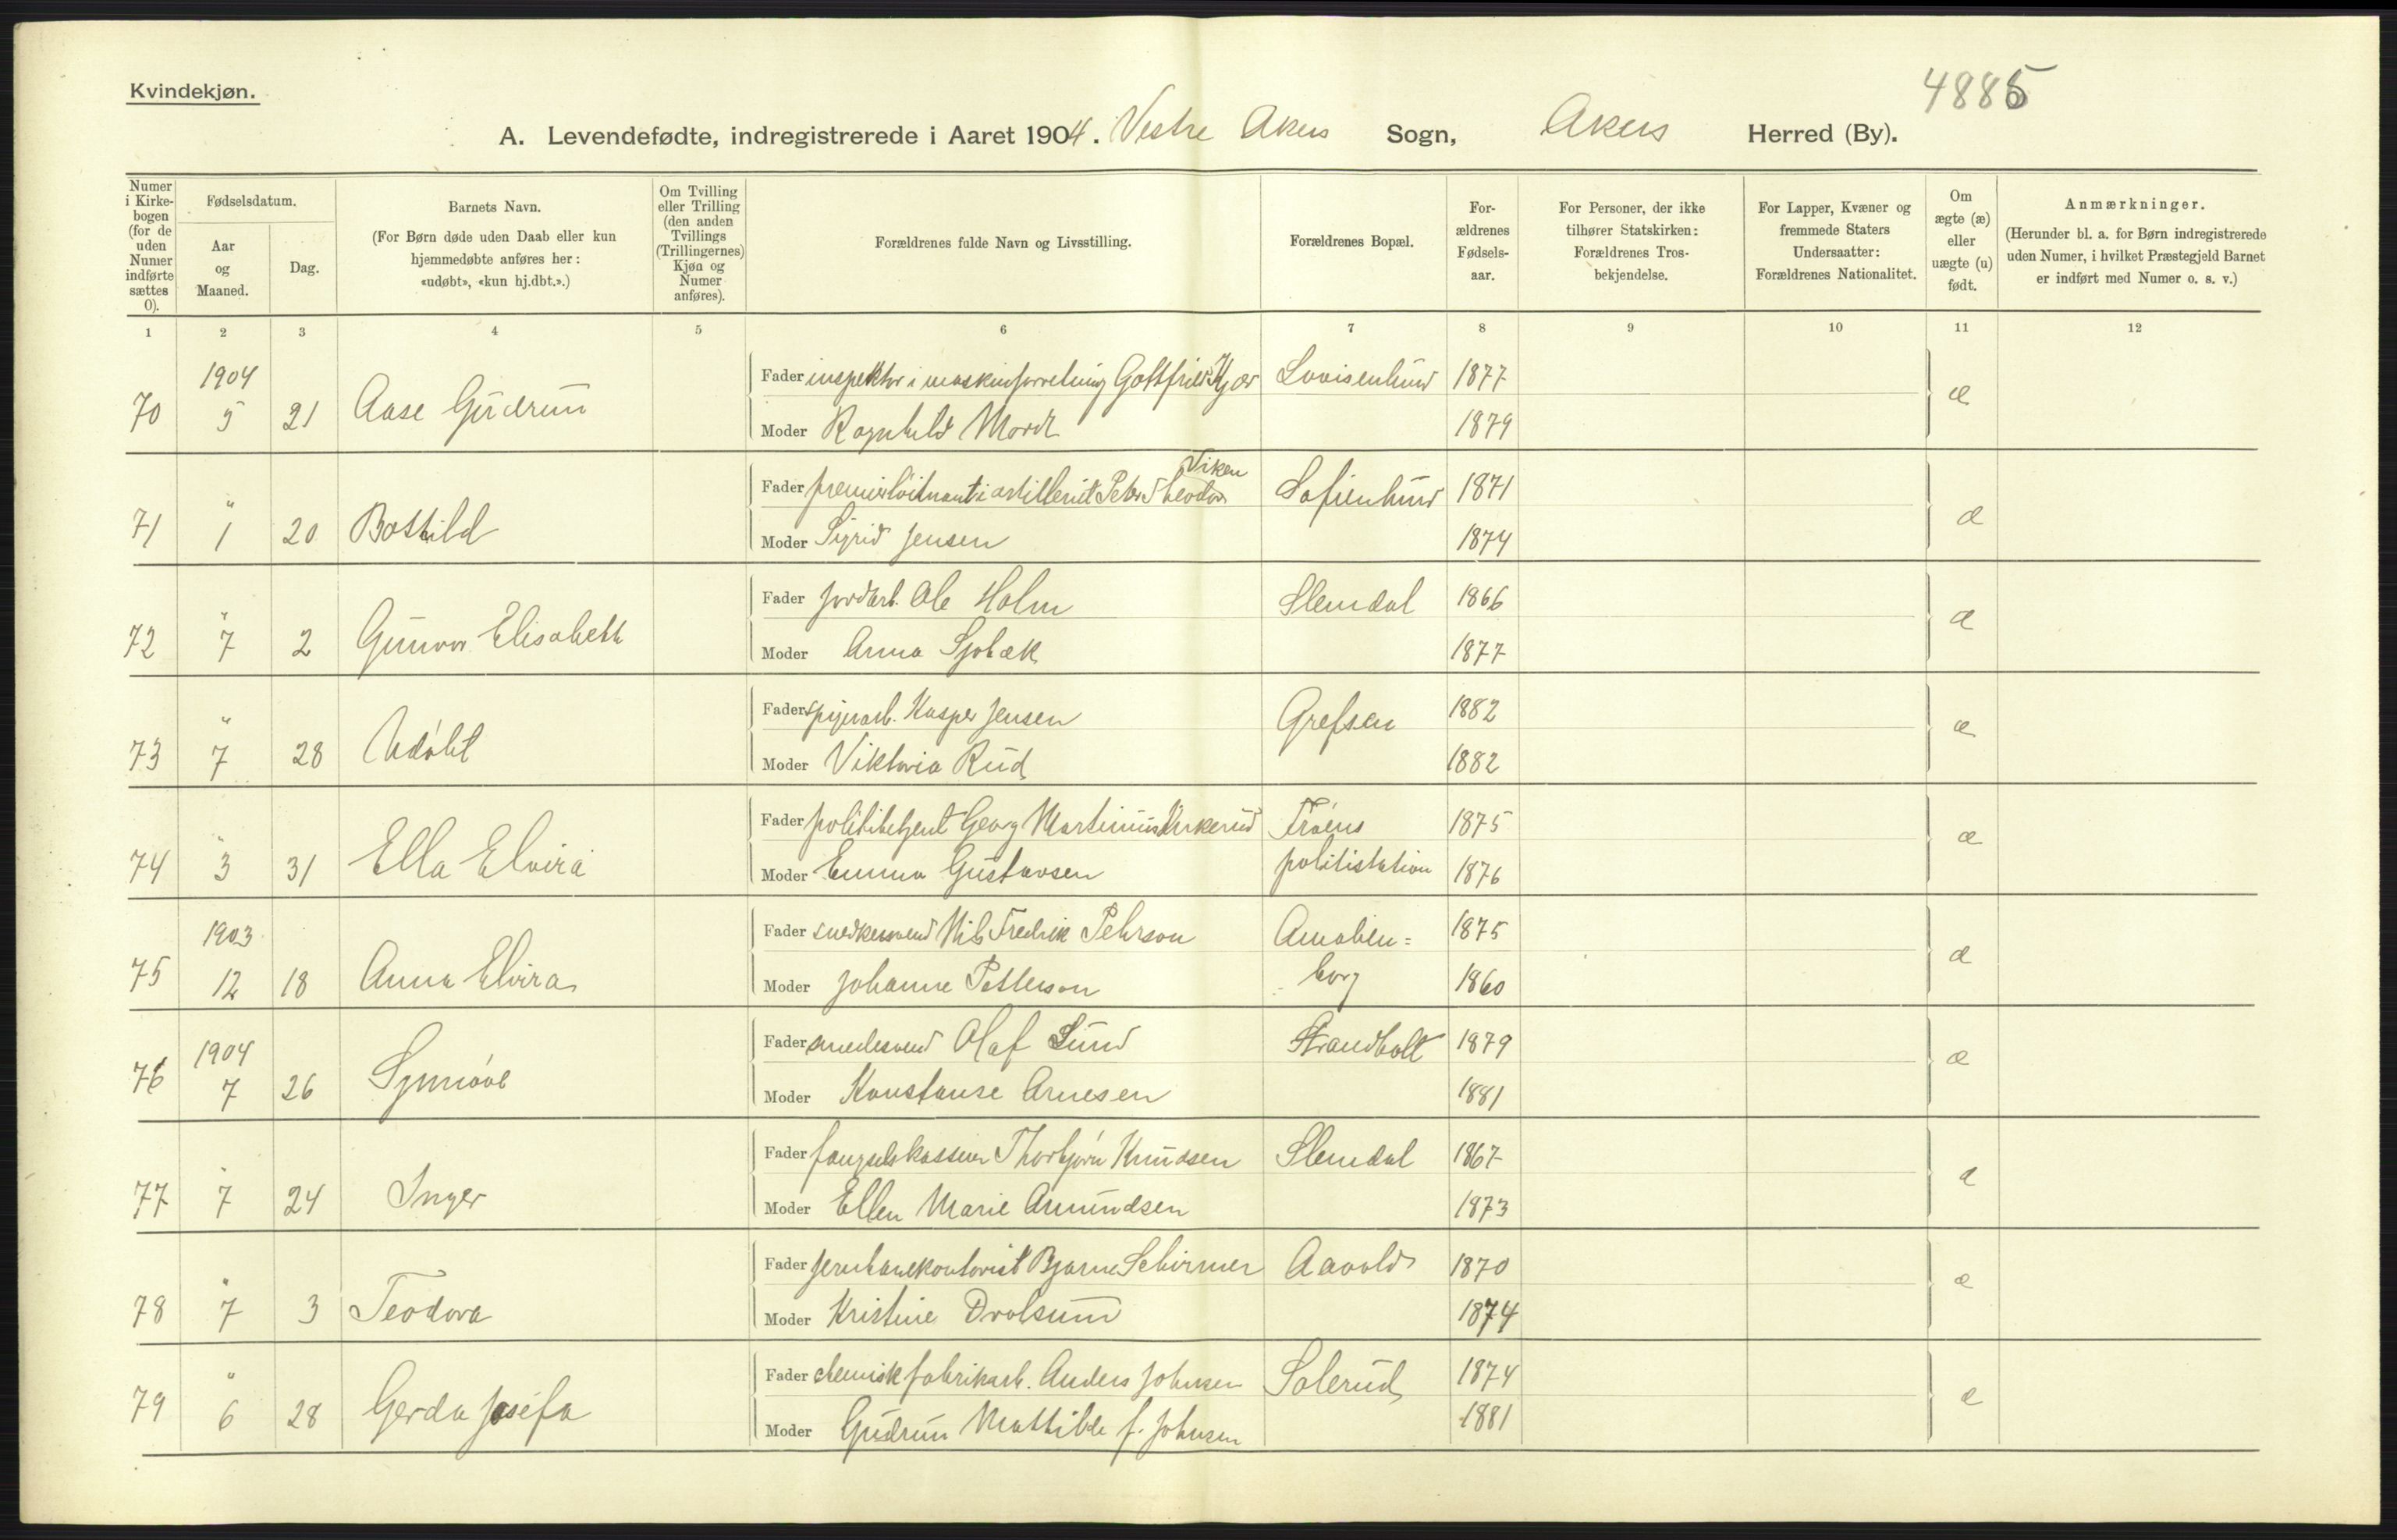 Kvindekjøn.
4885
A. Levendefødte, indregistrerede i Aaret 1904. Vestre Akers Sogn, Akers Herred (By).
Numer i Kirkebogen (for de uden Numer indførte sættes 0).
Fødselsdatum.
Aar og Maaned.
Dag.
Barnets Navn.
(For Børn døde uden Daab eller kun hjemmedøbte anføres her: «udøbt», «kun hj.dbt.».)
Om Tvilling eller Trilling (den anden Tvillings (Trillingernes) Kjøn og Numer anføres).
Forældrenes fulde Navn og Livsstilling.
Forældrenes Bopæl.
Forældrenes Fødselsaar.
For Personer, der ikke tilhører Statskirken: Forældrenes Trosbekjendelse.
For Lapper, Kvæner og fremmede Staters Undersaatter: Forældrenes Nationalitet.
Om ægte (æ) eller uægte (u) født.
Anmærkninger.
(Herunder bl. a. for Børn indregistrerede uden Numer, i hvilket Præstegjeld Barnet er indført med Numer o. s. v.)
1 2 3 4 5 6 7 8 9 10 11 12
1904
Fader inspektør i maskinforretning Gottfried Kjær Lovisenlund 1877
70 5 21 Aase Gudrun æ
Moder Ragnhild 1879
Viken
Fader premierløitnant i artilleriet Peter Theodor Sofienlund 1871
71 " 1 20 Bothild æ
Moder Sigrid Jensen 1874
Fader jordarb. Ole Holm Slemdal 1866
72 " 7 2 Gunvor Elisabeth æ
Moder Anna Sjøbæk 1877
Fader spigerarb. Kasper Jensen Grefsen 1882
73 " 7 28 Udøbt æ
Moder Viktoria Rud 1882
Fader politibetjent Georg Martinius Kirkerud Frøens 1875
74 " 3 31 Ella Elvira æ
Moder Emma Gustavsen politistation 1876
1903
Fader snedkersvend Nils Fredrik Pehrson Amalien= 1875
75 12 18 Anna Elvira æ
Moder Johanne Petterson borg 1860
1904
Fader smedesvend Olaf Lund Strandholt 1879
76 7 26 Synnøve æ
Moder Konstanse Arnesen 1881
Fader fængselskasserer Thorbjørn Knudsen Slemdal 1867
77 " 7 24 Inger æ
Moder Ellen Marie Amundsen 1873
Fader jernbanekontorist Bjarne Schirmer Aavold 1870
78 " 7 3 Teodora æ
Moder Kristine Drolsum 1874
Fader chemisk fabrikarb. Anders Johnsen Solerud 1874
79 " 6 28 Gerda Josefa æ
Moder Gudrun Mathilde f. Johnsen 1881